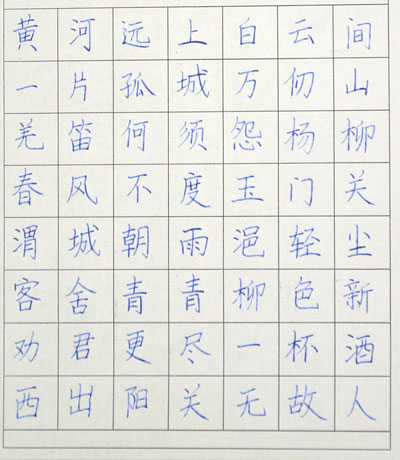 黄河远上白云间
一片孤城万仞山
羌笛何须怨杨柳
春风不度玉门关
渭城朝雨浥轻尘
客舍青青柳色新
劝君更尽一杯酒
西出阳关无故人